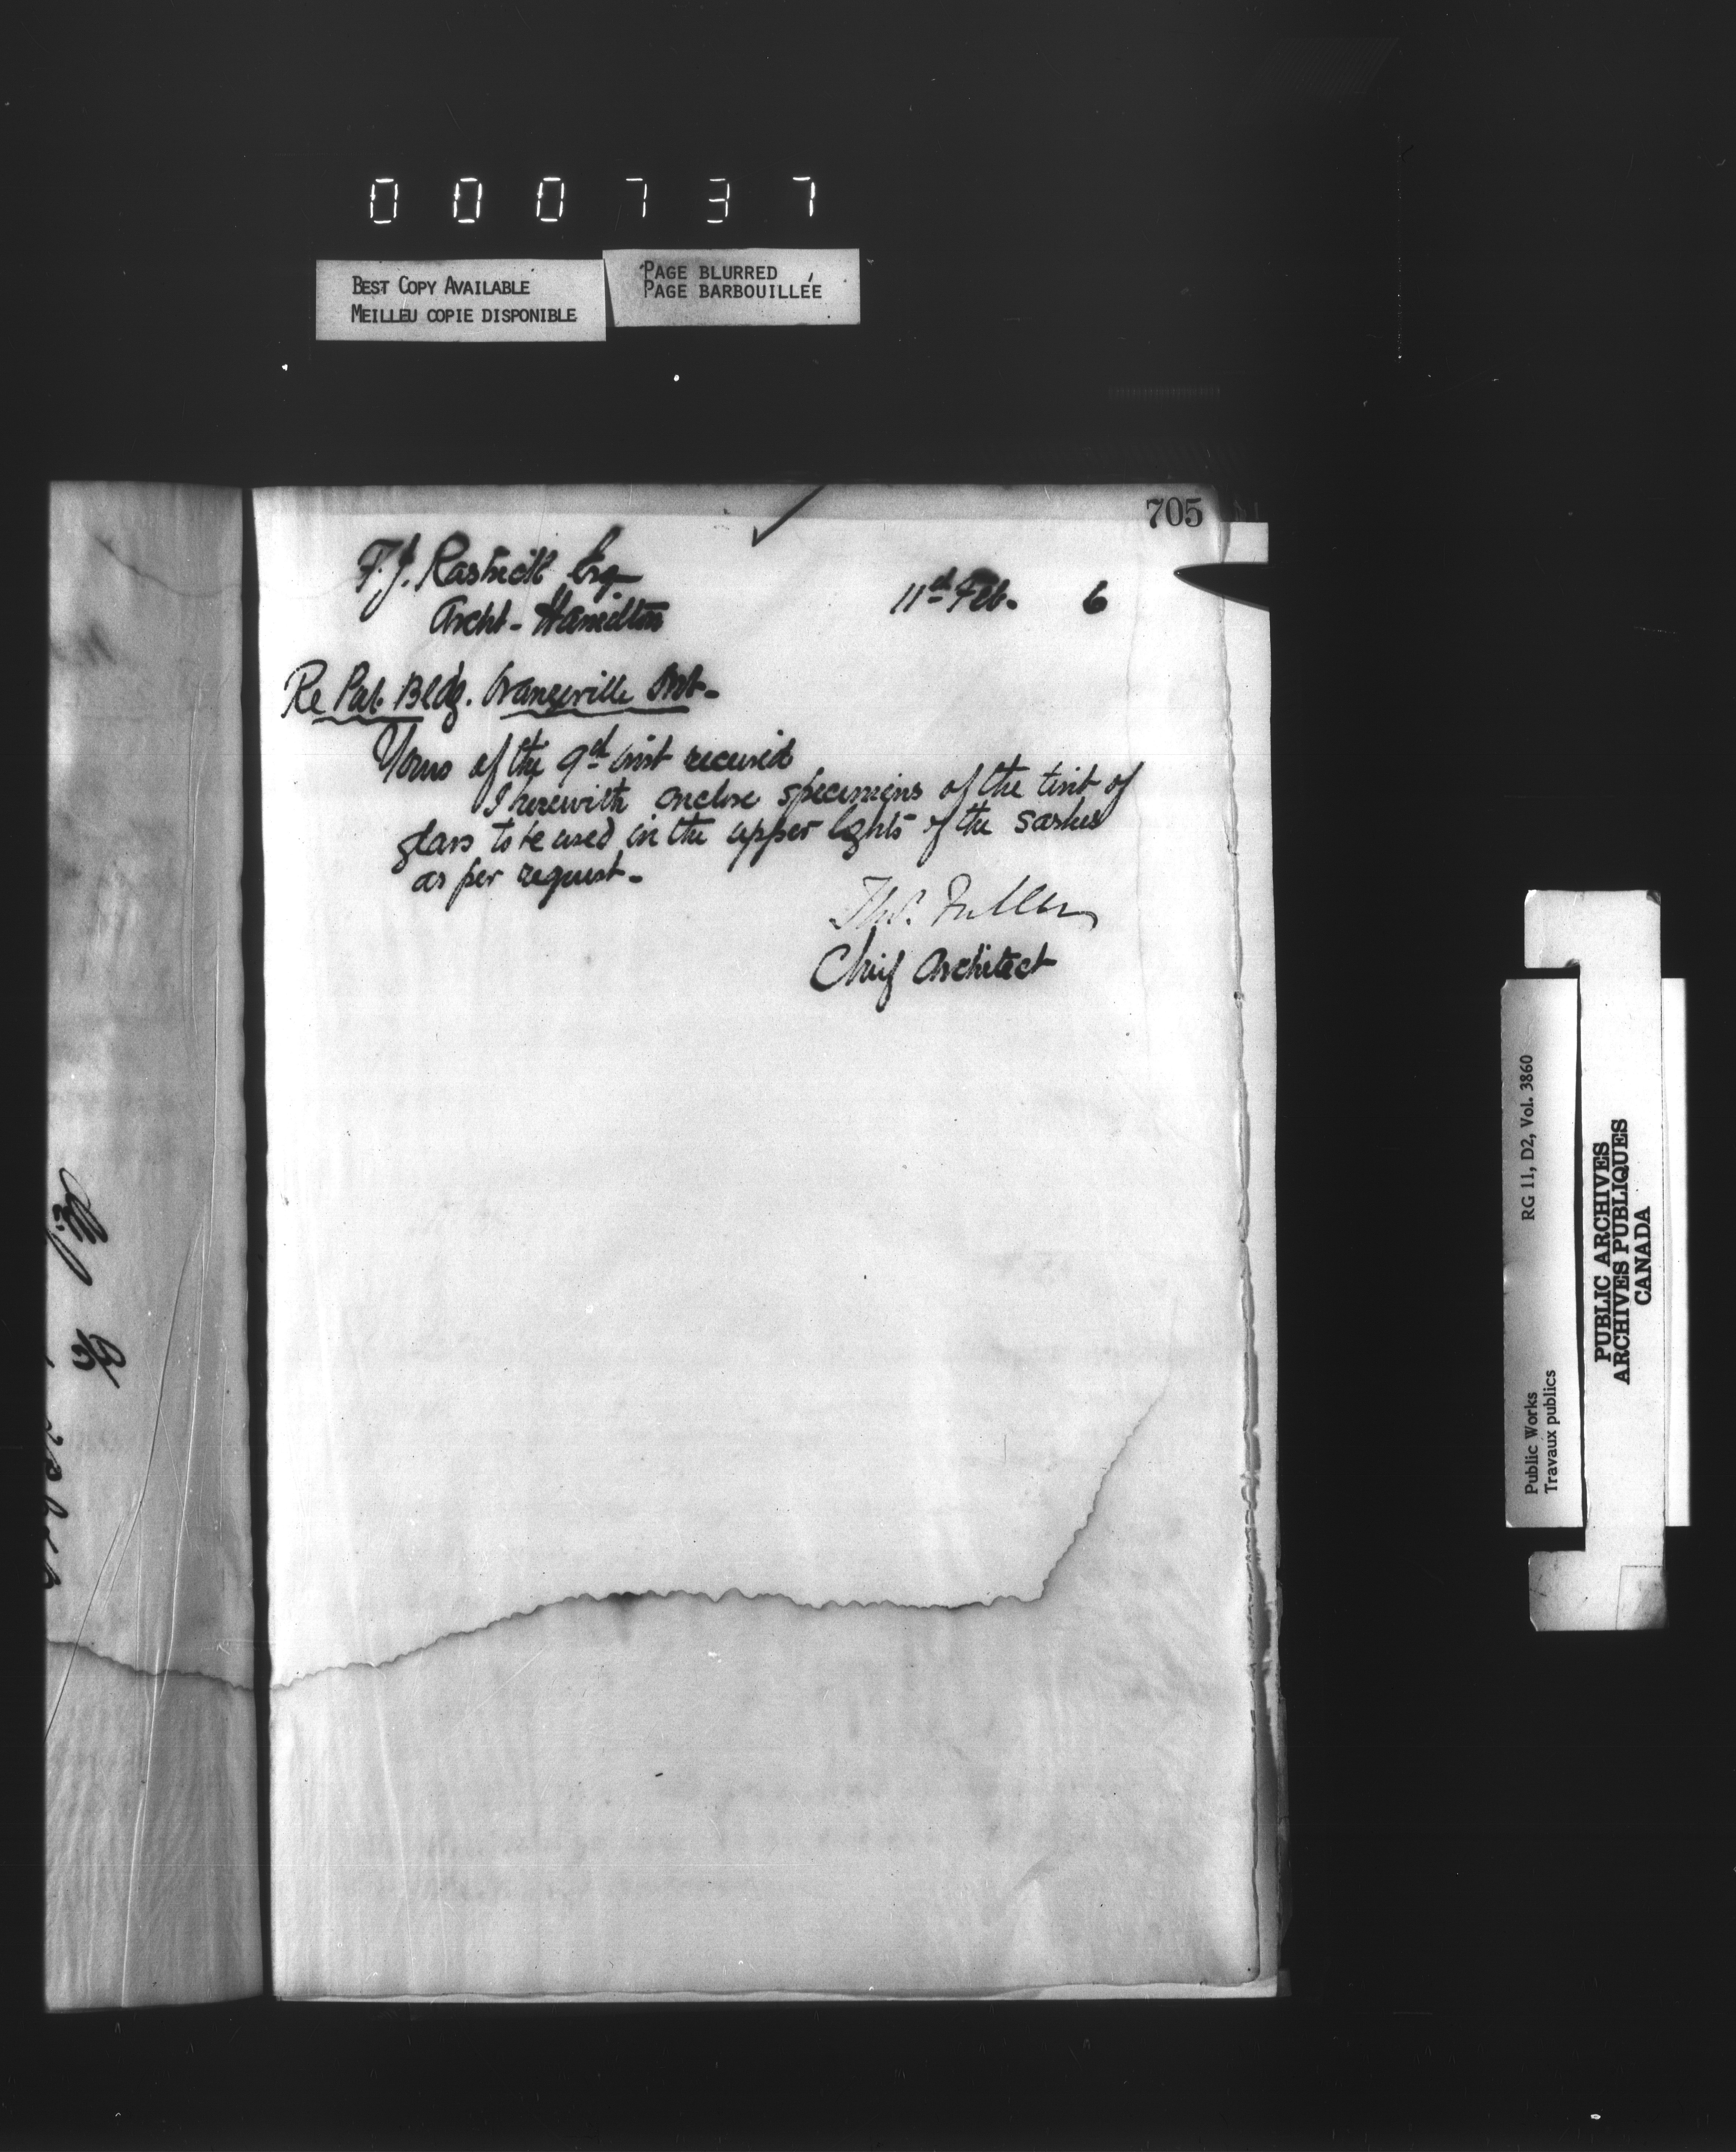 000737
BEST COPY AVAILABLE
MEILLEU COPIE DISPONIBLE
PAGE BLURRED
PAGE BARBOUILLÉE
705
F.J. Rastrick Esq
Archt - Hamilton
11th Feb. 6
Re Pub. Bldg. Orangeville Ont-
Yours of the 9th inst received
I herewith enclose specimens of the tint of
glass to be used in the upper lights of the sashes
as per request -
Thos. Fuller
Chief Architect
Public Works
Travaux publics
RG 11, D2, Vol. 3860
PUBLIC ARCHIVES
ARCHIVES PUBLIQUES
CANADA